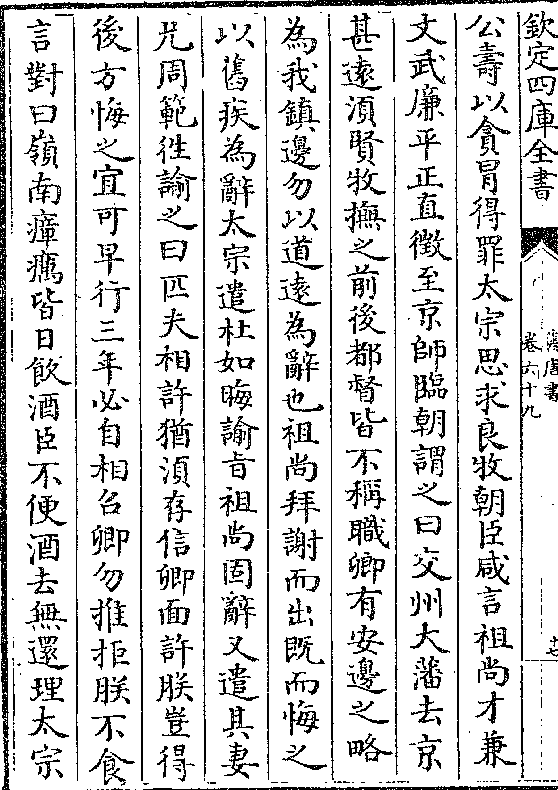 欽定四庫全書
舊唐書
卷六十九
公壽以貪冒得罪太宗思求良牧朝臣咸言祖尚才兼
文武廉平正直徵至京師臨朝謂之曰交州大藩去京
甚遠湏賢牧撫之前後都督皆不稱職卿有安邊之略
為我鎮邊勿以道遠為辭也祖尚拜謝而出既而悔之
以舊疾為辭太宗遣杜如晦諭㫖祖尚固辭又遣其妻
兄周範徃諭之曰匹夫相許猶湏存信卿面許朕豈得
後方悔之宜可早行三年必自相召卿勿推拒朕不食
言對曰嶺南瘴癘皆日飲酒臣不便酒去無還理太宗